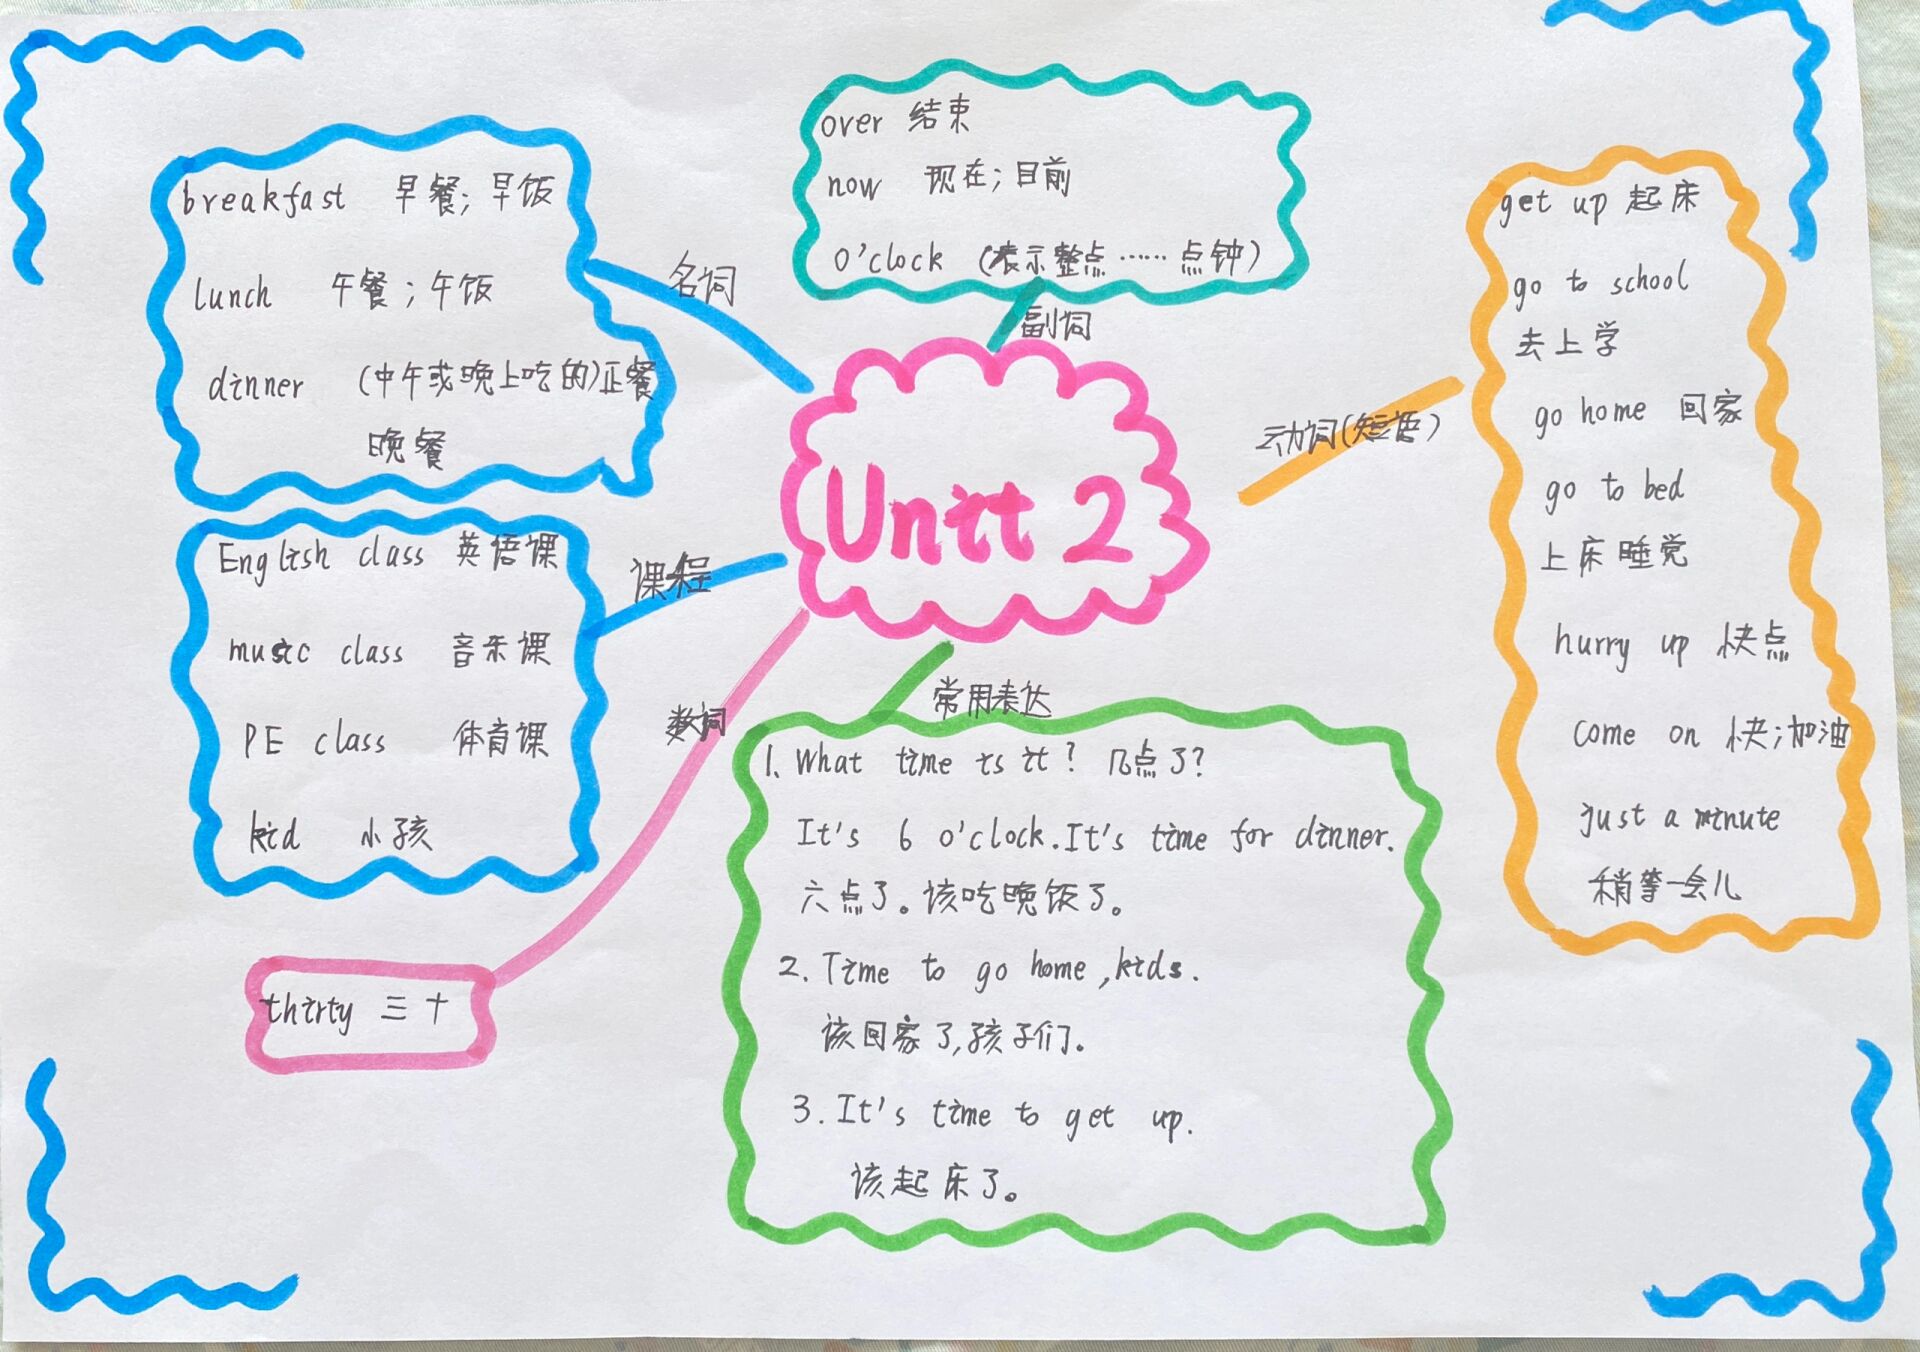 breakfast 早餐;早饭
lunch 午餐;午饭
dinner (中午或晚上吃的)正餐
晚餐
名词
over 结束
now 现在;目前
o'clock (表示整点……点钟)
副词
get up 起床
go to school
去上学
go home 回家
go to bed
上床睡觉
hurry up 快点
come on 快;加油
just a minute
稍等一会儿
动词(短语)
Unit 2
English class 英语课
music class 音乐课
PE class 体育课
kid 小孩
课程
数词
thirty 三十
常用表达
1. What time is it? 几点了?
It's 6 o'clock. It's time for dinner.
六点了。该吃晚饭了。
2. Time to go home, kids.
该回家了,孩子们。
3. It's time to get up.
该起床了。